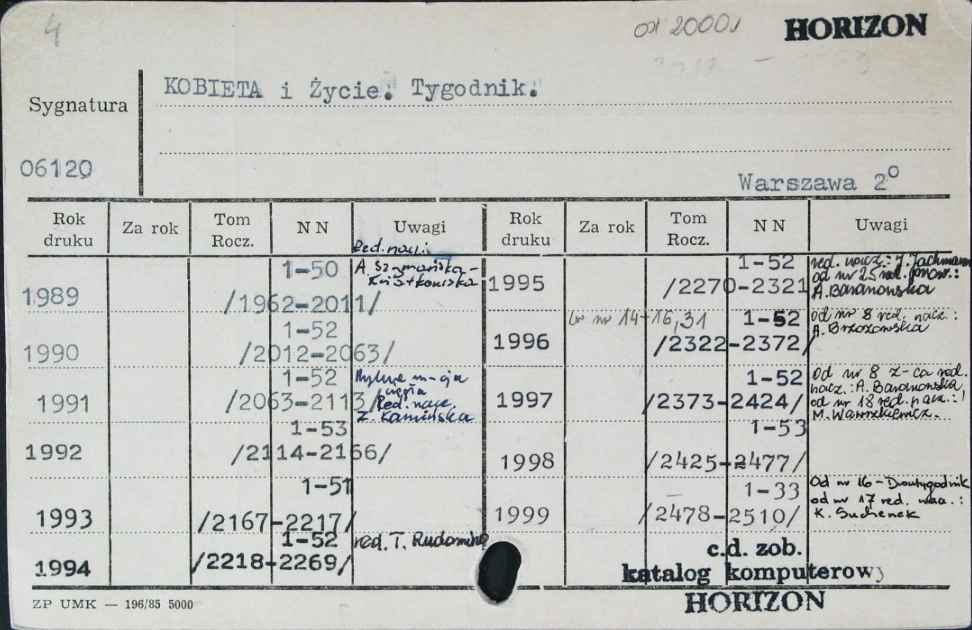 4
od 2000 r.
HORIZON
KOBIETA i Życie. Tygodnik.
Sygnatura
06120
Warszawa 2°
Rok druku Za rok Tom Rocz. N N Uwagi Rok druku Za rok Tom Rocz. N N Uwagi
1989 1-50 /1962-2011/ Red. nacz.: A. Szymańska-Kwiatkowska
1990 1-52 /2012-2063/
1991 1-52 /2063-2113/ Red. nacz. Z. Kamińska
1992 1-53 /2114-2166/
1993 1-51 /2167-2217/
1994 1-52 /2218-2269/ red. T.
1995 1-52 /2270-2321 red. nacz.: J. od nr 25 A. Baranowska
1996 br nr 14-16,31 1-52 /2322-2372/ od nr 8 red. nacz.: A. Brzozowska
1997 1-52 /2373-2424/ Od nr 8 z-ca red. nacz.: A. Baranowska, od nr 18 red. nacz.: M.
1998 1-53 /2425-2477/
1999 1-33 /2478-2510/ Od nr 16 - Dwutygodnik od nr 17 red. K. Suchenek
c.d. zob.
katalog komputerowy
HORIZON
ZP UMK — 196/85 5000